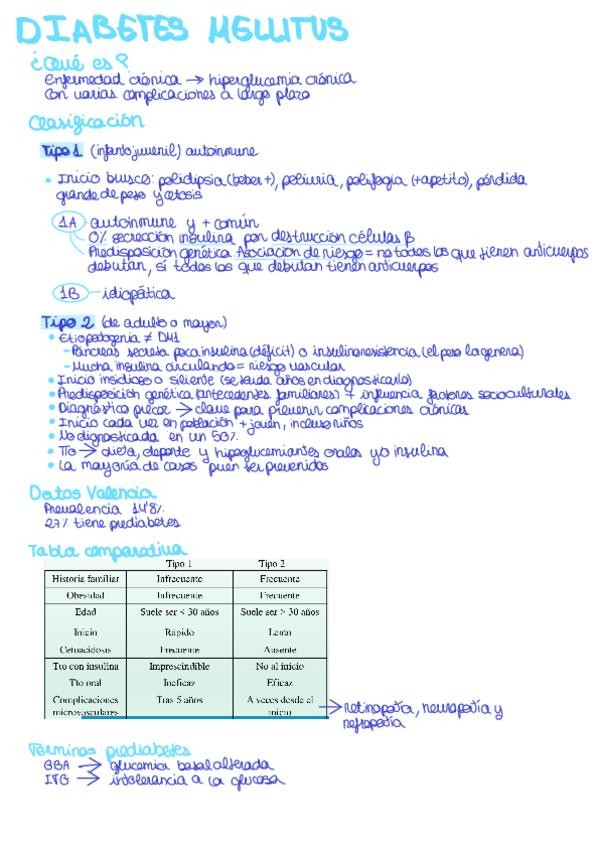 DIABETES MELLITUS
¿Qué es?
Enfermedad crónica → hiperglucemia crónica
Con varias complicaciones a largo plazo
Clasificación
Tipo 1 (infantojuvenil) autoinmune
• Inicio brusco: polidipsia (beber +), poliuria, polifagia (+ apetito), pérdida
grande de peso y cetosis
1A autoinmune y + común
0% secreción insulina por destrucción células β
Predisposición genética. Asociación de riesgo = no todos los que tienen anticuerpos
debutan, si todos los que debutan tienen anticuerpos
1B - idiopática
Tipo 2 (de adulto o mayor)
• Etiopatogenia ≠ DM1
- Páncreas secreta poca insulina (déficit) o insulinoresistencia (el peso la genera)
- Mucha insulina circulando = riesgo vascular
• Inicio insidioso o silente (se tarda años en diagnosticarlo)
• Predisposición genética (antecedentes familiares) + influencia factores socioculturales
• Diagnóstico precoz → clave para prevenir complicaciones crónicas
• Inicio cada vez en población + joven, incluso niños
• No dignosticada en un 50%
• Tto → dieta, deporte y hipoglucemiantes orales y/o insulina
• La mayoría de casos puen ser prevenidos
Datos Valencia
Prevalencia 14'8%
27% tiene prediabetes
Tabla comparativa
Tipo 1 Tipo 2
Historia familiar Infrecuente Frecuente
Obesidad Infrecuente Frecuente
Edad Suele ser < 30 años Suele ser > 30 años
Inicio Rápido Lento
Cetoacidosis Frecuente Ausente
Tto con insulina Imprescindible No al inicio
Tto oral Ineficaz Eficaz
Complicaciones microvasculares Tras 5 años A veces desde el inicio → retinopatía, neuropatía y
nefropatía
Términos prediabetes
GBA → glucemia basal alterada
ITG → intolerancia a la glucosa